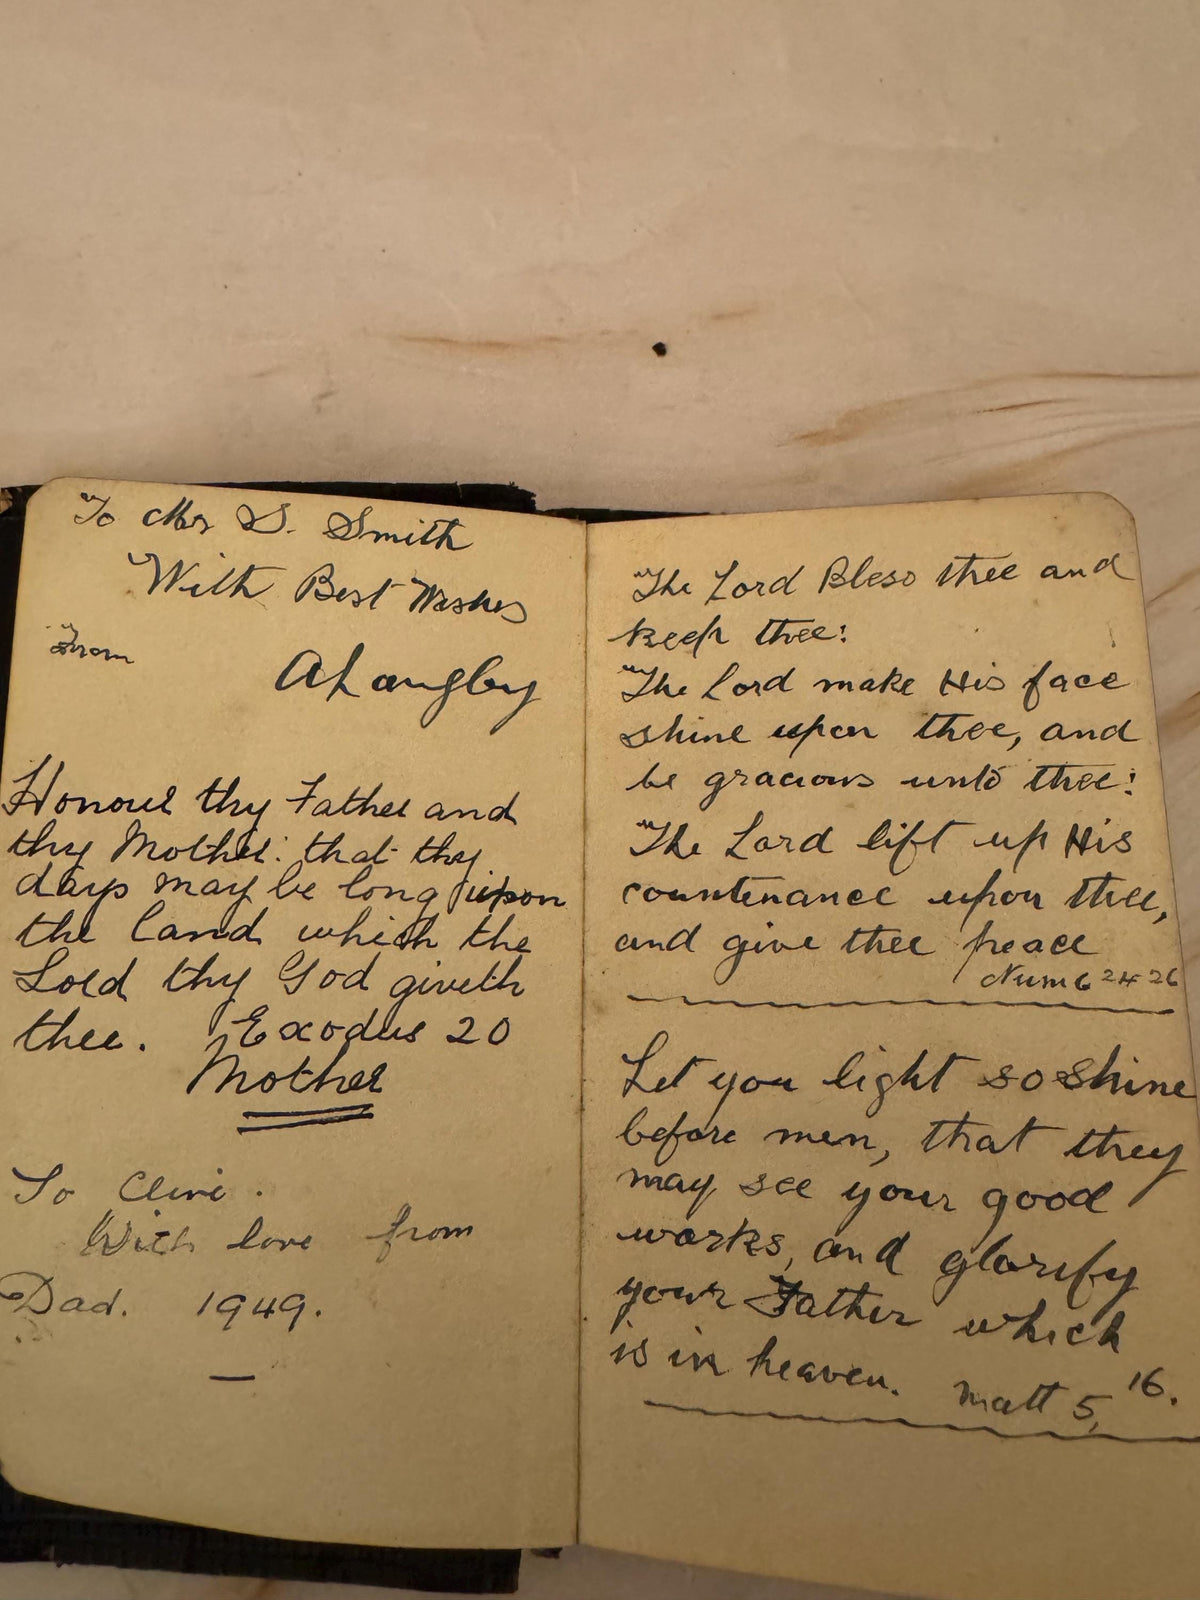 To Mr S. Smith
With Best Wishes
From
A Langley
Honour thy Father and
thy Mother: that thy
days may be long upon
the land which the
Lord thy God giveth
thee. Exodus 20
Mother
To Clive.
With love from
Dad. 1949.
The Lord Bless thee and
keep thee:
The Lord make His face
shine upon thee, and
be gracious unto thee:
The Lord lift up His
countenance upon thee,
and give thee peace
Num 6 24 26
Let you light so shine
before men, that they
may see your good
works, and glorify
your Father which
is in heaven. Matt 5, 16.